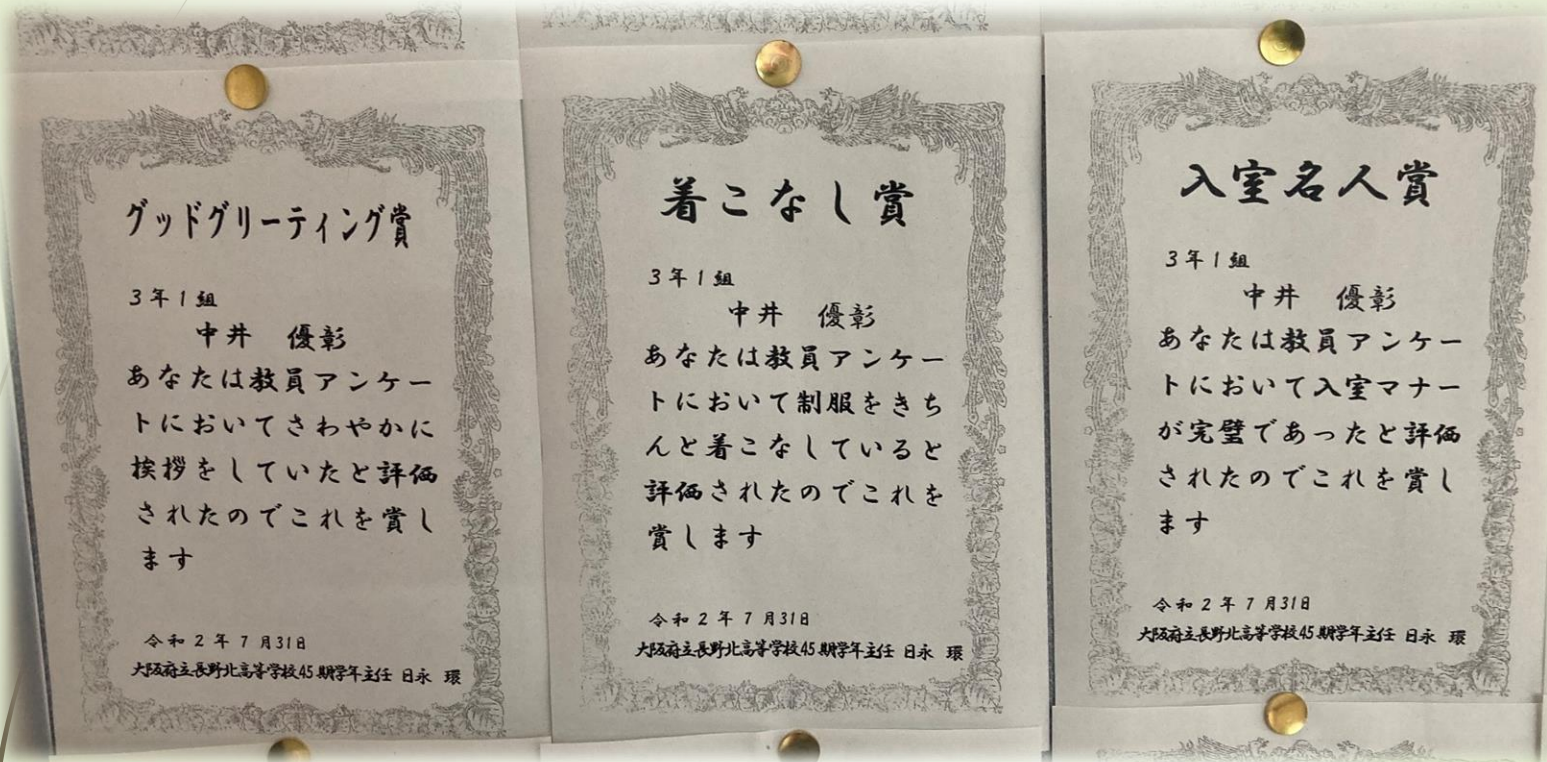 グッドグリーティング賞
3年1組
中井 優彰
あなたは教員アンケー
トにおいてさわやかに
挨拶をしていたと評価
されたのでこれを賞し
ます
令和2年7月31日
大阪府立長野北高等学校45期学年主任 日永 環
着こなし賞
3年1組
中井 優彰
あなたは教員アンケー
トにおいて制服をきち
んと着こなしていると
評価されたのでこれを
賞します
令和2年7月31日
大阪府立長野北高等学校45期学年主任 日永 環
入室名人賞
3年1組
中井 優彰
あなたは教員アンケー
トにおいて入室マナー
が完璧であったと評価
されたのでこれを賞し
ます
令和2年7月31日
大阪府立長野北高等学校45期学年主任 日永 環